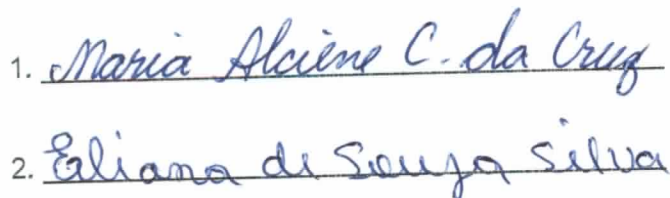 1. Maria Alciene C. da Cruz
2. Eliana de Souza Silva